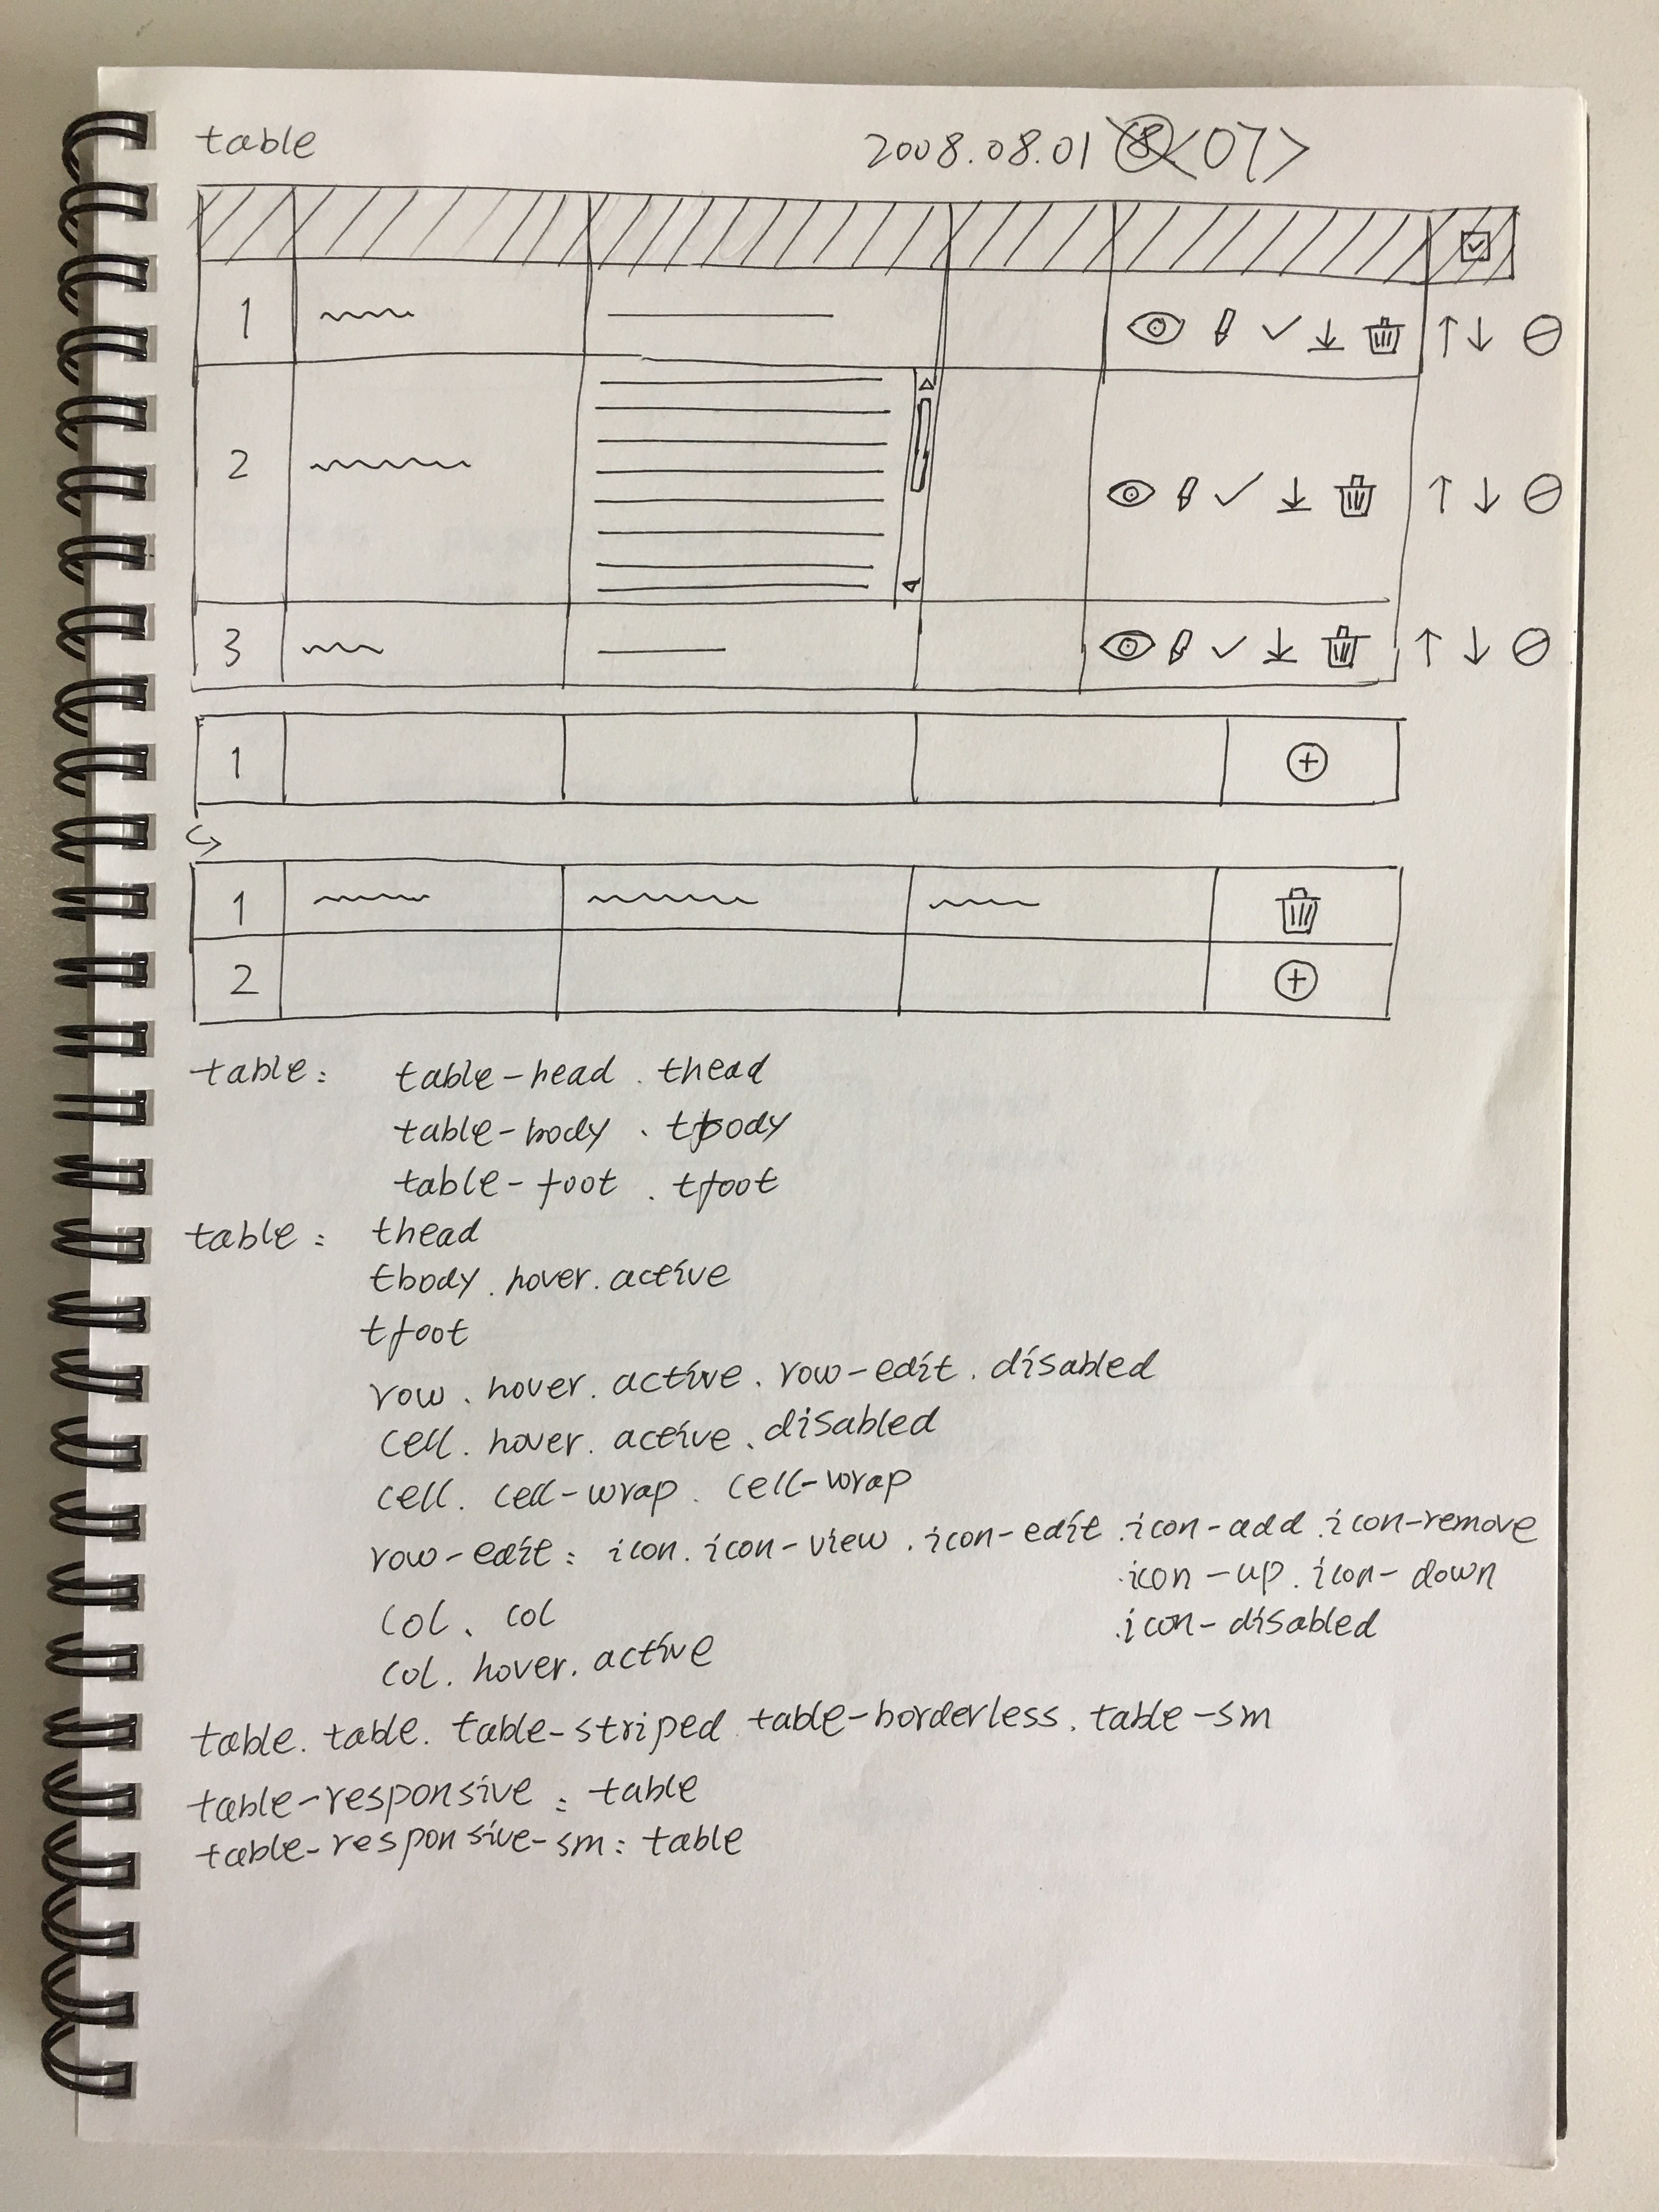 table
2008.08.01 <07>
1
2
3
1
1
2
table: table-head . thead
table-body . tbody
table-foot . tfoot
table: thead
tbody . hover . active
tfoot
row . hover . active . row-edit . disabled
cell . hover . active . disabled
cell . cell-wrap . cell-wrap
row-edit: icon . icon-view . icon-edit . icon-add . icon-remove
.icon-up . icon-down
.icon-disabled
col . col
col . hover . active
table . table . table-striped . table-borderless . table-sm
table-responsive : table
table-responsive-sm : table